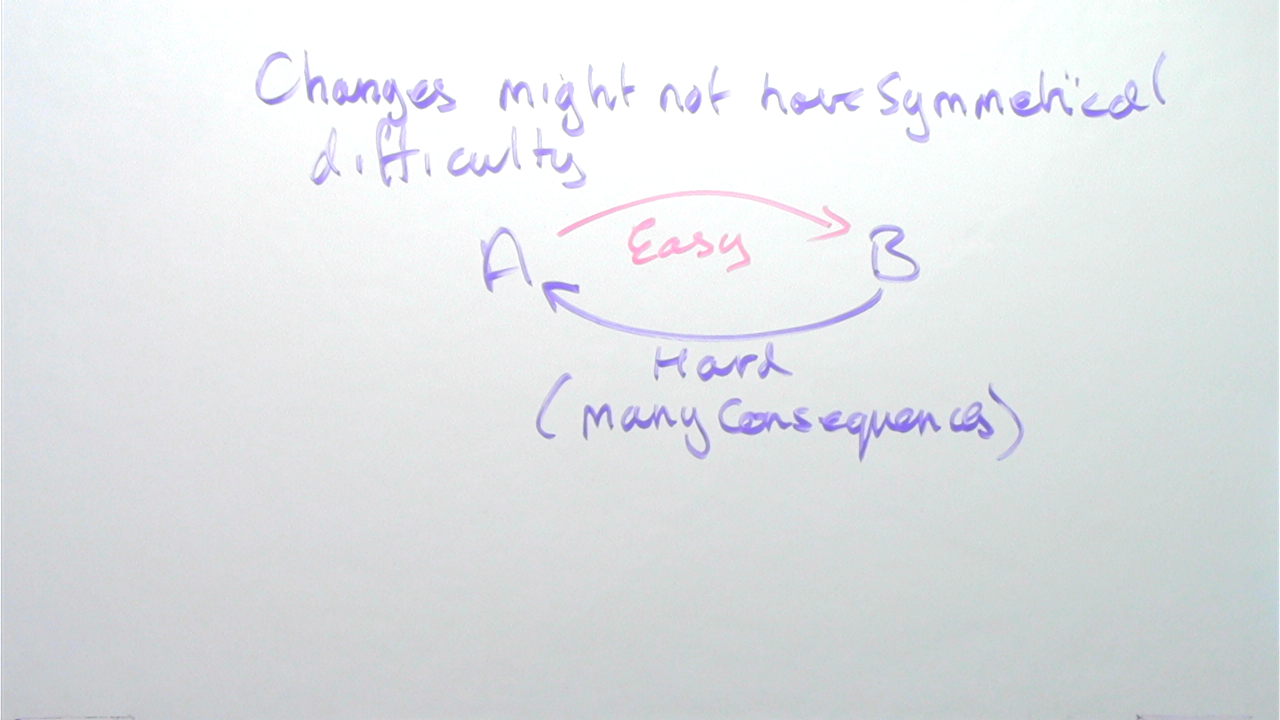 Changes might not have symmetrical
difficulty
A Easy B
Hard
(many consequences)